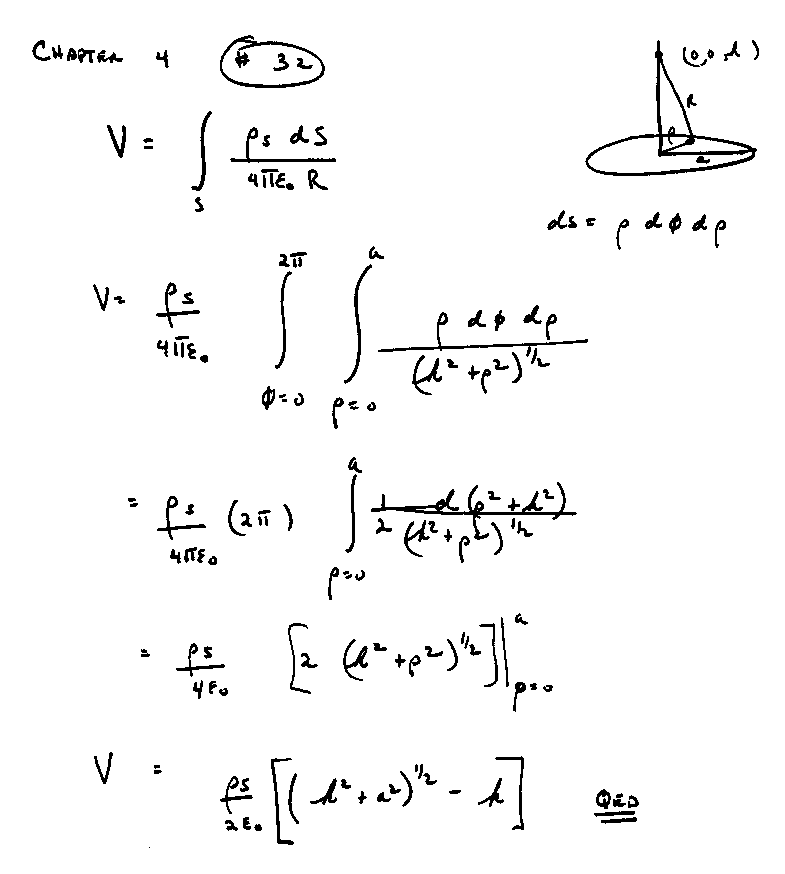 CHAPTER 4 # 32
(0,0,h)
R
ρ
a
V = ∫_S ρs dS / 4πε₀ R
ds = ρ dϕ dρ
V = ρs / 4πε₀ ∫_{ϕ=0}^{2π} ∫_{ρ=0}^{a} ρ dϕ dρ / (h² + ρ²)^{1/2}
= ρs / 4πε₀ (2π) ∫_{ρ=0}^{a} 1/2 d(ρ² + h²) / (h² + ρ²)^{1/2}
= ρs / 4ε₀ [2 (h² + ρ²)^{1/2}] |_{ρ=0}^{a}
V = ρs / 2ε₀ [(h² + a²)^{1/2} - h] QED